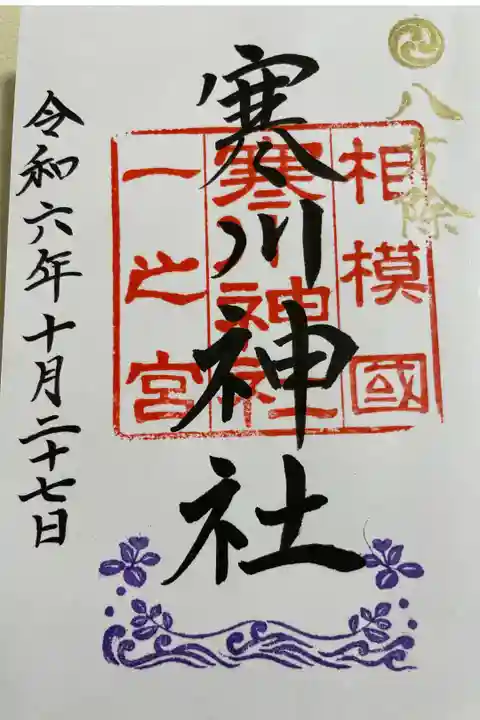 八方除
相模國
寒川神社
一之宮
寒川神社
令和六年十月二十七日